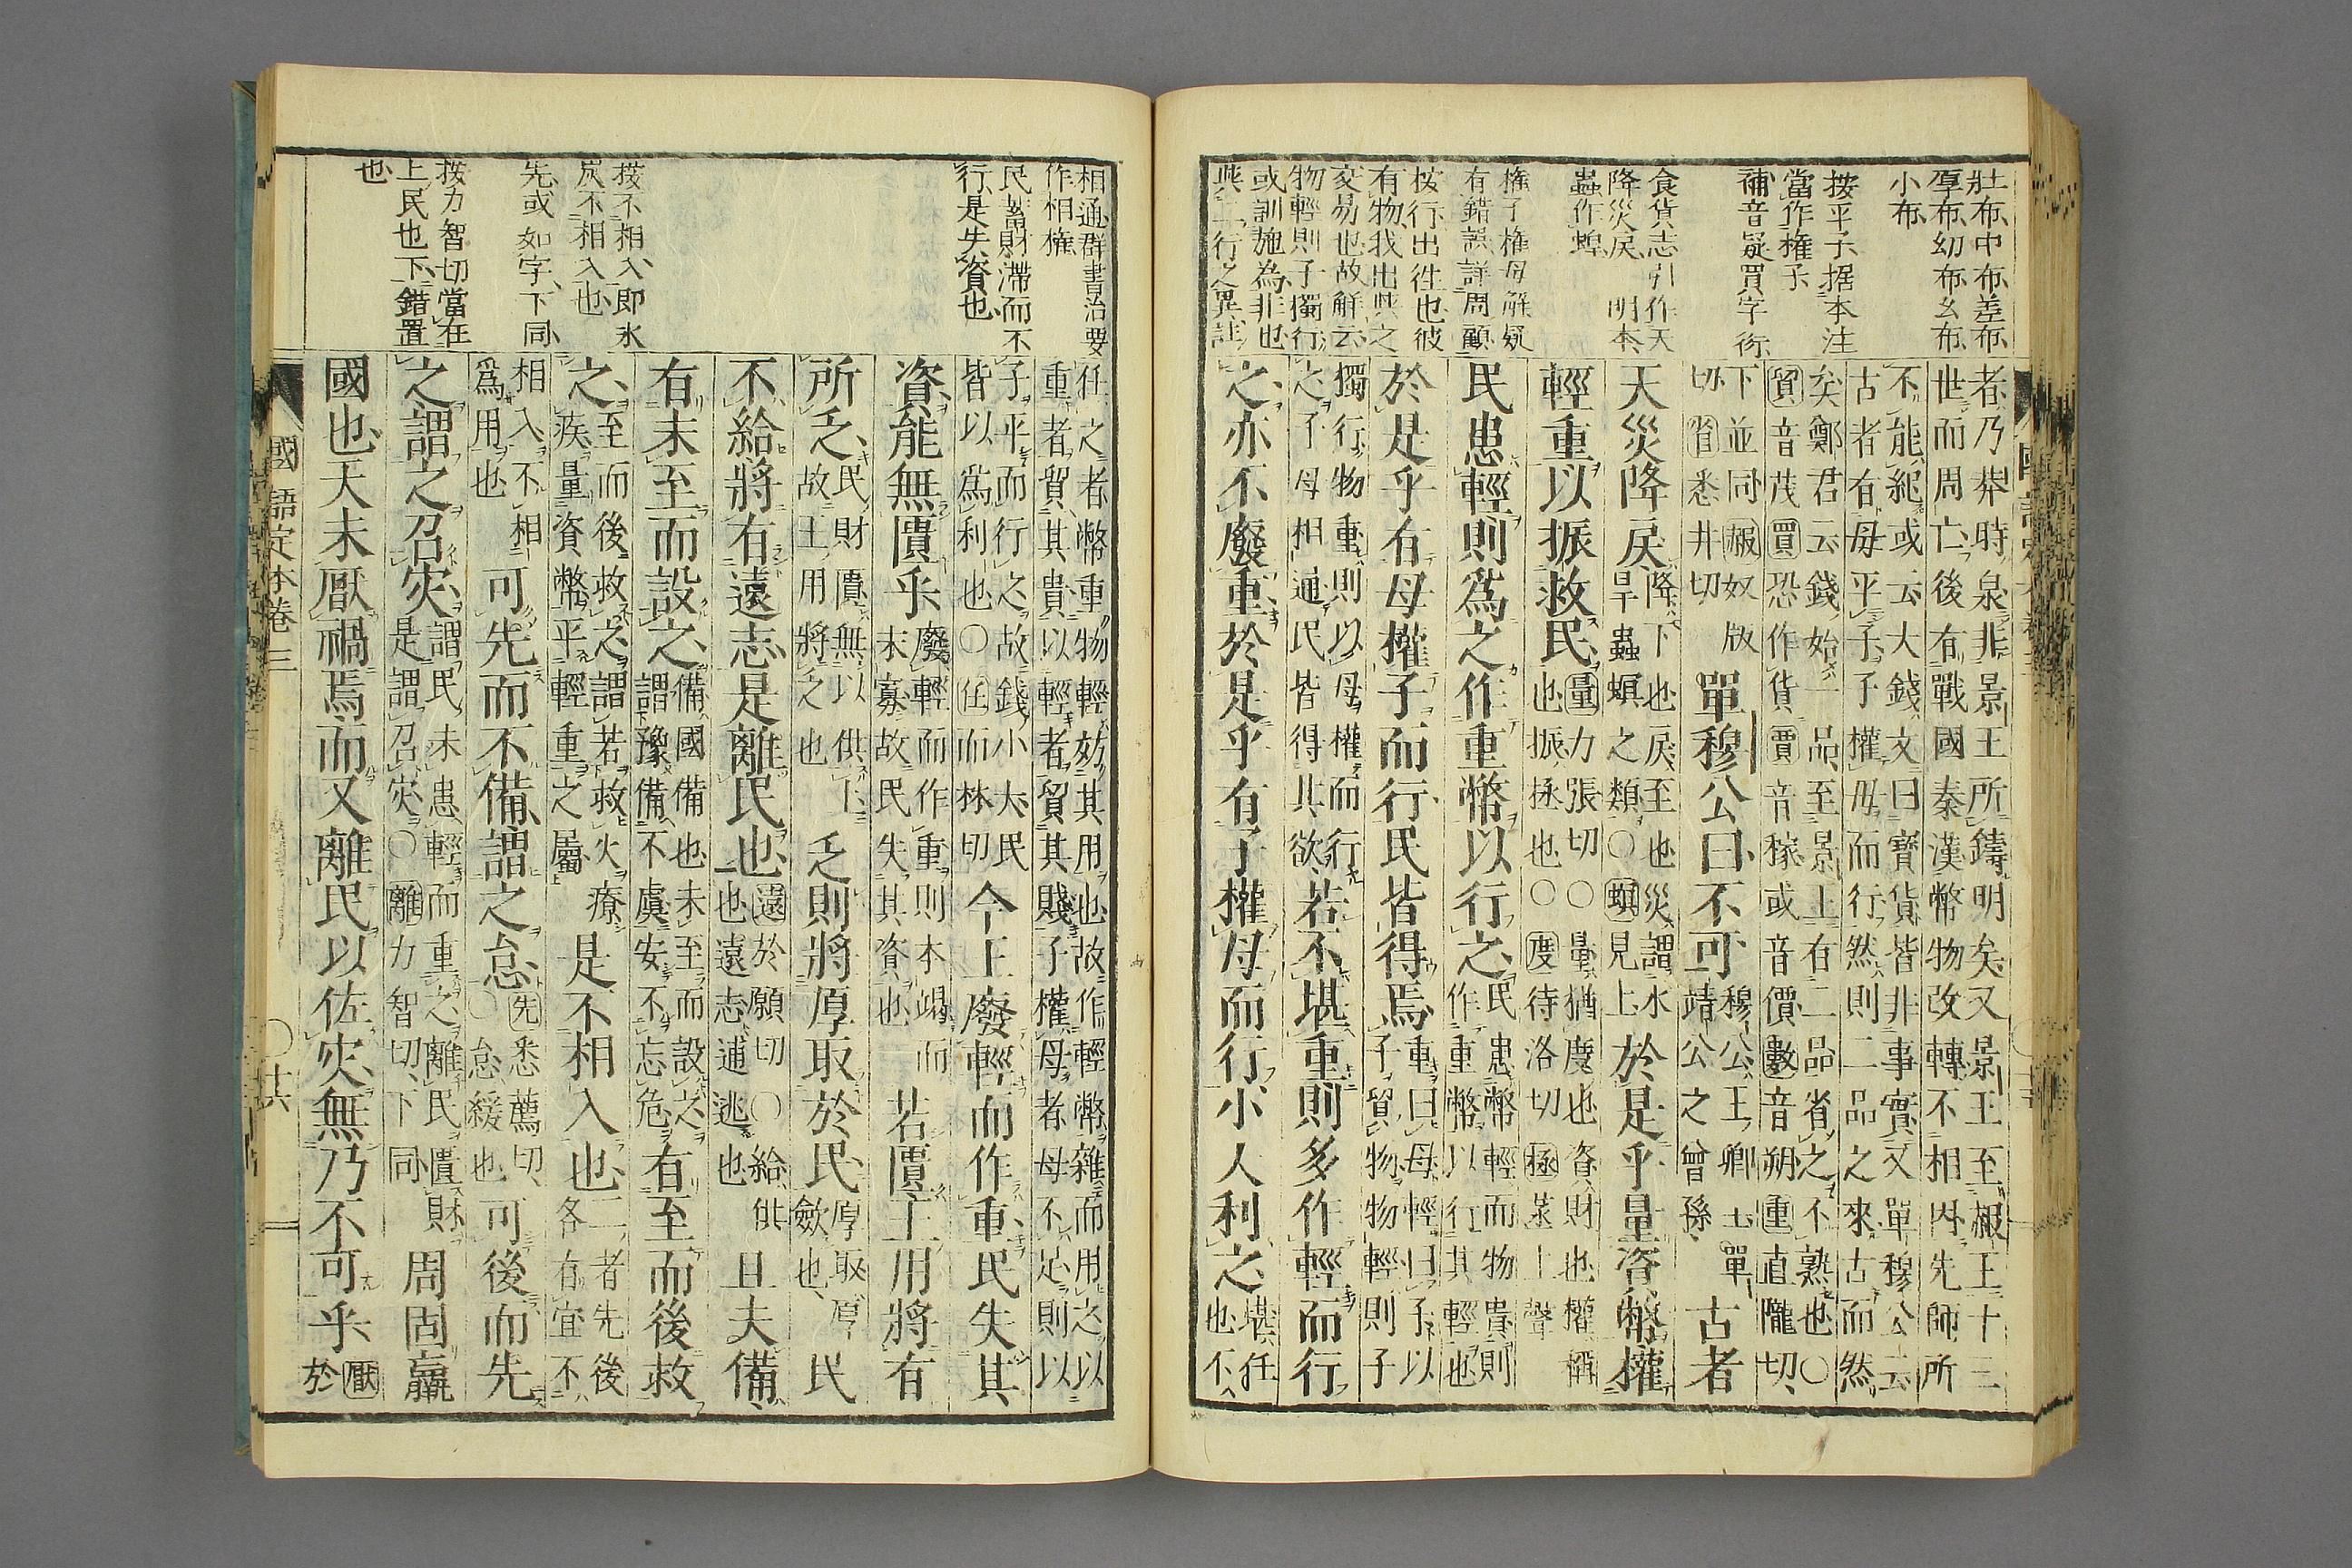 壯布中布差布
厚布幼布幺布
小布
按平子据本注
當作權子
補音疑買字衍
食貨志引作天
降災戾 明本
蟲作蝗
権子權母解疑
有錯誤詳周顧
按行出往也彼
有物我出與之
交易也故解云
物輕則子獨行
或訓施為非也
與上行之異註
者乃莽時泉非景王所鑄明矣又景王至赧王十三
世而周亡後有戰國秦漢幣物改轉不相因先師所
不能紀或云大錢文曰寶貨皆非事實又單穆公云
古者有母平子子權母而行然則二品之來古而然
矣鄭君云錢始一品至景王有二品省之不熟也〇
貿音茂買恐作貨賈音稼或音價數音朔重直隴切
下並同赧奴版
切省悉井切
單穆公曰不可穆公王卿士單
靖公之曾孫
古者
天災降戾降下也戾至也災謂水
旱蟲螟之類〇螟見上
於是乎量資幣權
輕重以振救民量力張切〇量猶度也資財也權稱
也振拯也〇度待洛切拯蒸上聲
民患輕則爲之作重幣以行之民患幣輕而物貴則
作重幣以行其輕也
於是乎有母權子而行民皆得焉重曰母輕曰子以
子貿物物輕則子
獨行物重則以母權而行
之子母相通民皆得其欲
若不堪重則多作輕而行
之亦不廢重於是乎有子權母而行小人利之堪任
也不
相通群書治要
作相権
民蓄財滯而不
行是失資也
按不相入即氷
炭不相入也
先或如字下同
按力智切當在
上民也下錯置
也
任之者幣重物輕妨其用也故作輕幣雜而用之以
重者貿其貴以輕者貿其賤子權母者母不足則以
子平而行之故錢小大民
皆以爲利也〇任而林切
今王廢輕而作重民失其
資能無匱乎廢輕而作重則本竭而
末寡故民失其資也
若匱王用將有
所乏民財匱無以供上
故王用將乏也
乏則將厚取於民厚取厚
斂也
民
不給將有遠志是離民也遠於願切〇給供
也遠志逋逃也
且夫備
有未至而設之備國備也未至而設之
謂豫備不虞安不忘危
有至而後救
之至而後救之謂若救火療
疾量資幣平輕重之屬
是不相入也二者先後
各有宜不
相入不相
爲用也
可先而不備謂之怠先悉薦切
〇怠緩也
可後而先
之謂之召災謂民未患輕而重之離民匱財
是謂召災〇離力智切下同
周固羸
國也天未厭禍焉而又離民以佐災無乃不可乎厭
於
國語定本卷三
〇廿六